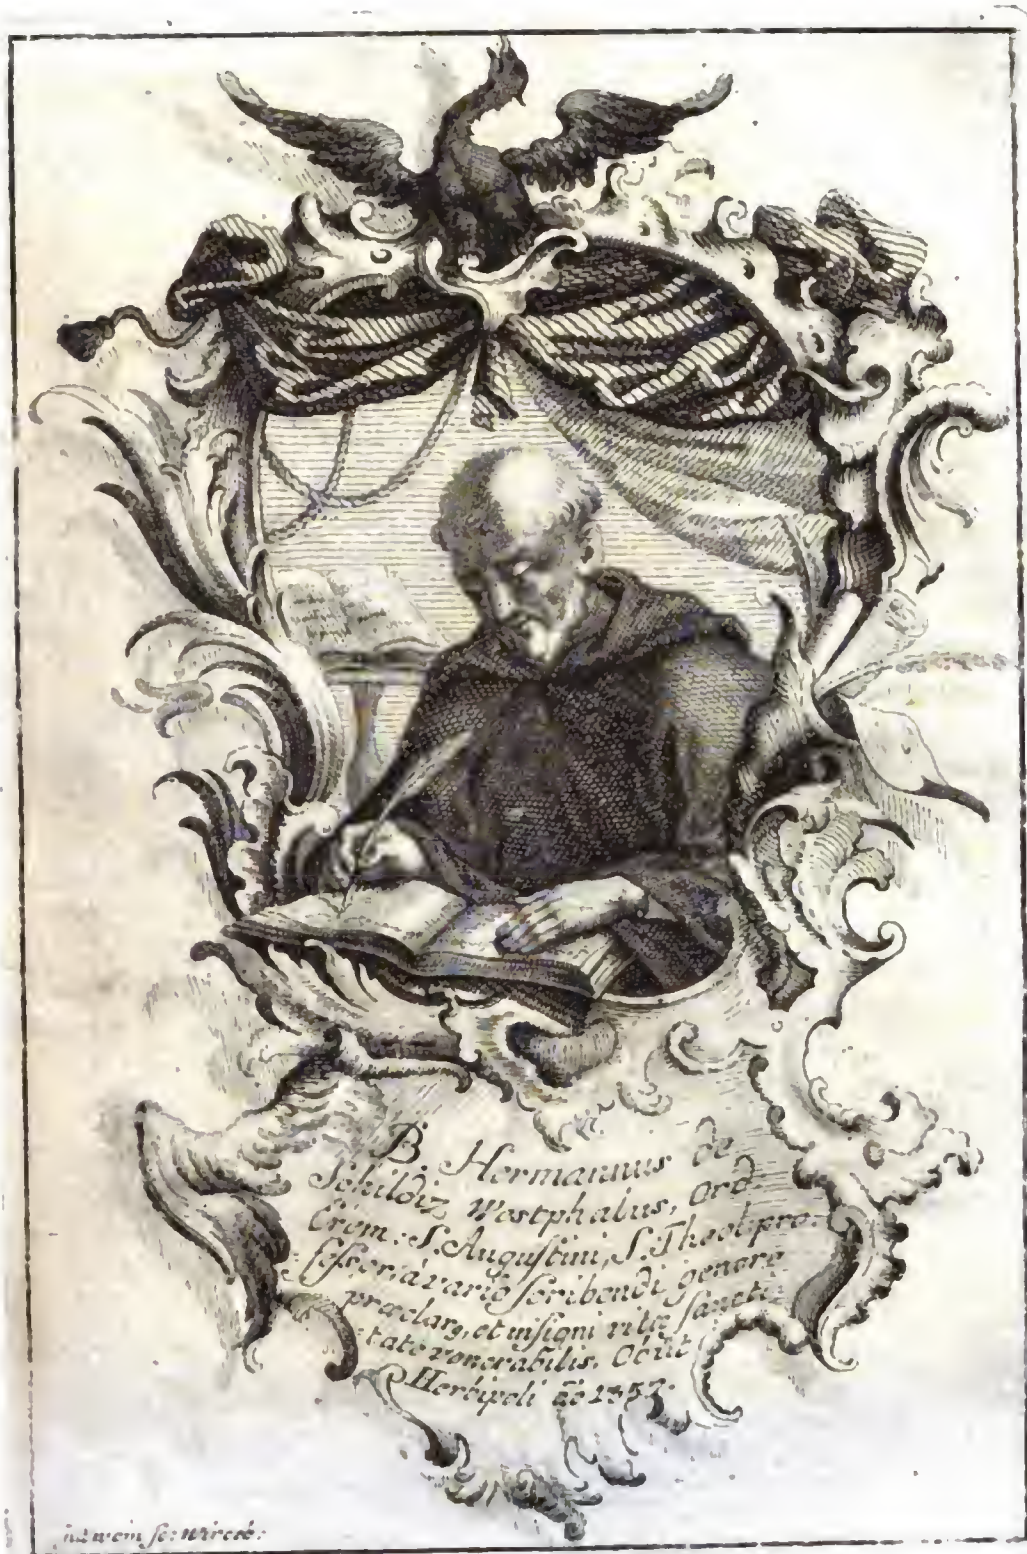 B Hermannus de
Schildiz, Westphalus, Ord.
Erem: S. Augustini, S. Theol: pro:
fessor à vario scribendi genere
præclarꝰ, et insigni vitæ sancti:
tate venerabilis. Obiit
Herbipoli aō 1357.
sc: Wirceb: